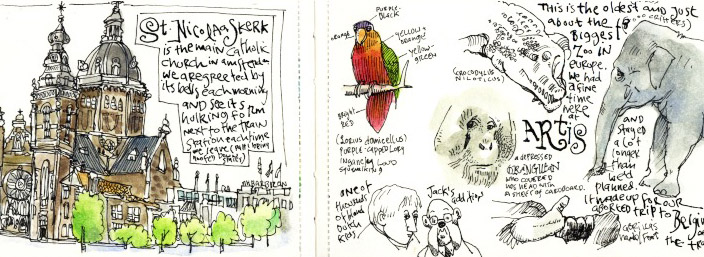 St. Nicolaaskerk
is the main Catholic
church in Amsterdam
we are greeted by
its bells each morning
and see its
hulking form
next to the train
station each time
we leave
orange
PURPLE-
BLACK
YELLOW-
orange
YELLOW-
GREEN
Bright
RED
PURPLE-CAPPED LORY
(CROCODYLUS
NILOTICUS)
This is the oldest and just
about the
Biggest
Zoo IN
EUROPE.
we had
a fine
time
here
at
ARTIS
AND
stayed
a lot
longer
than
we'd
planned.
it made up for our
aborted trip to Belgium
A DEPRESSED
ORANGUTAN
WHO COVERED
HIS HEAD WITH
A SHEET OF CARDBOARD.
one of
thousands
of blond
Dutch
kids
Jack's
addition
GORILLAS